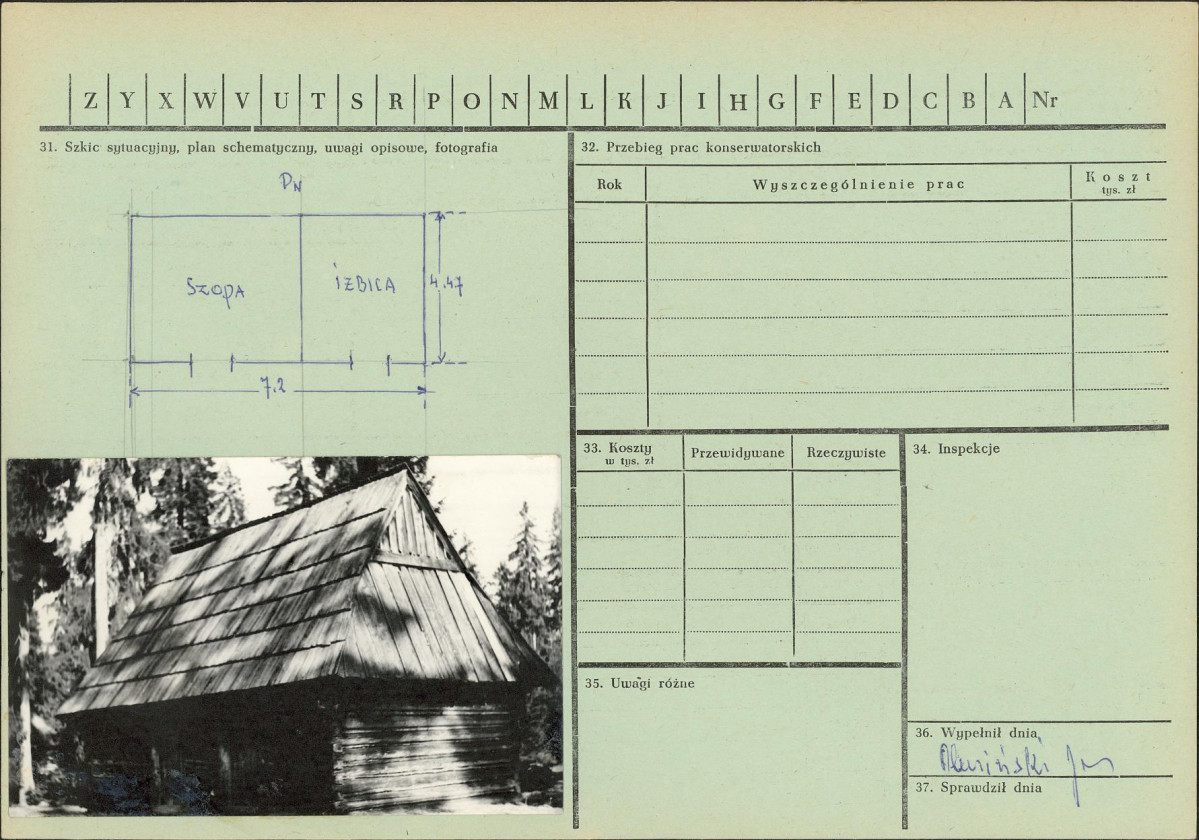 Z Y X W V U T S R P O N M L K J I H G F E D C B A Nr
31. Szkic sytuacyjny, plan schematyczny, uwagi opisowe, fotografia
PN
SZOPA
IZBICA
4.47
7.2
32. Przebieg prac konserwatorskich
Rok
Wyszczególnienie prac
Koszt
tys. zł
33. Koszty
w tys. zł
Przewidywane
Rzeczywiste
34. Inspekcje
35. Uwagi różne
36. Wypełnił dnia
37. Sprawdził dnia